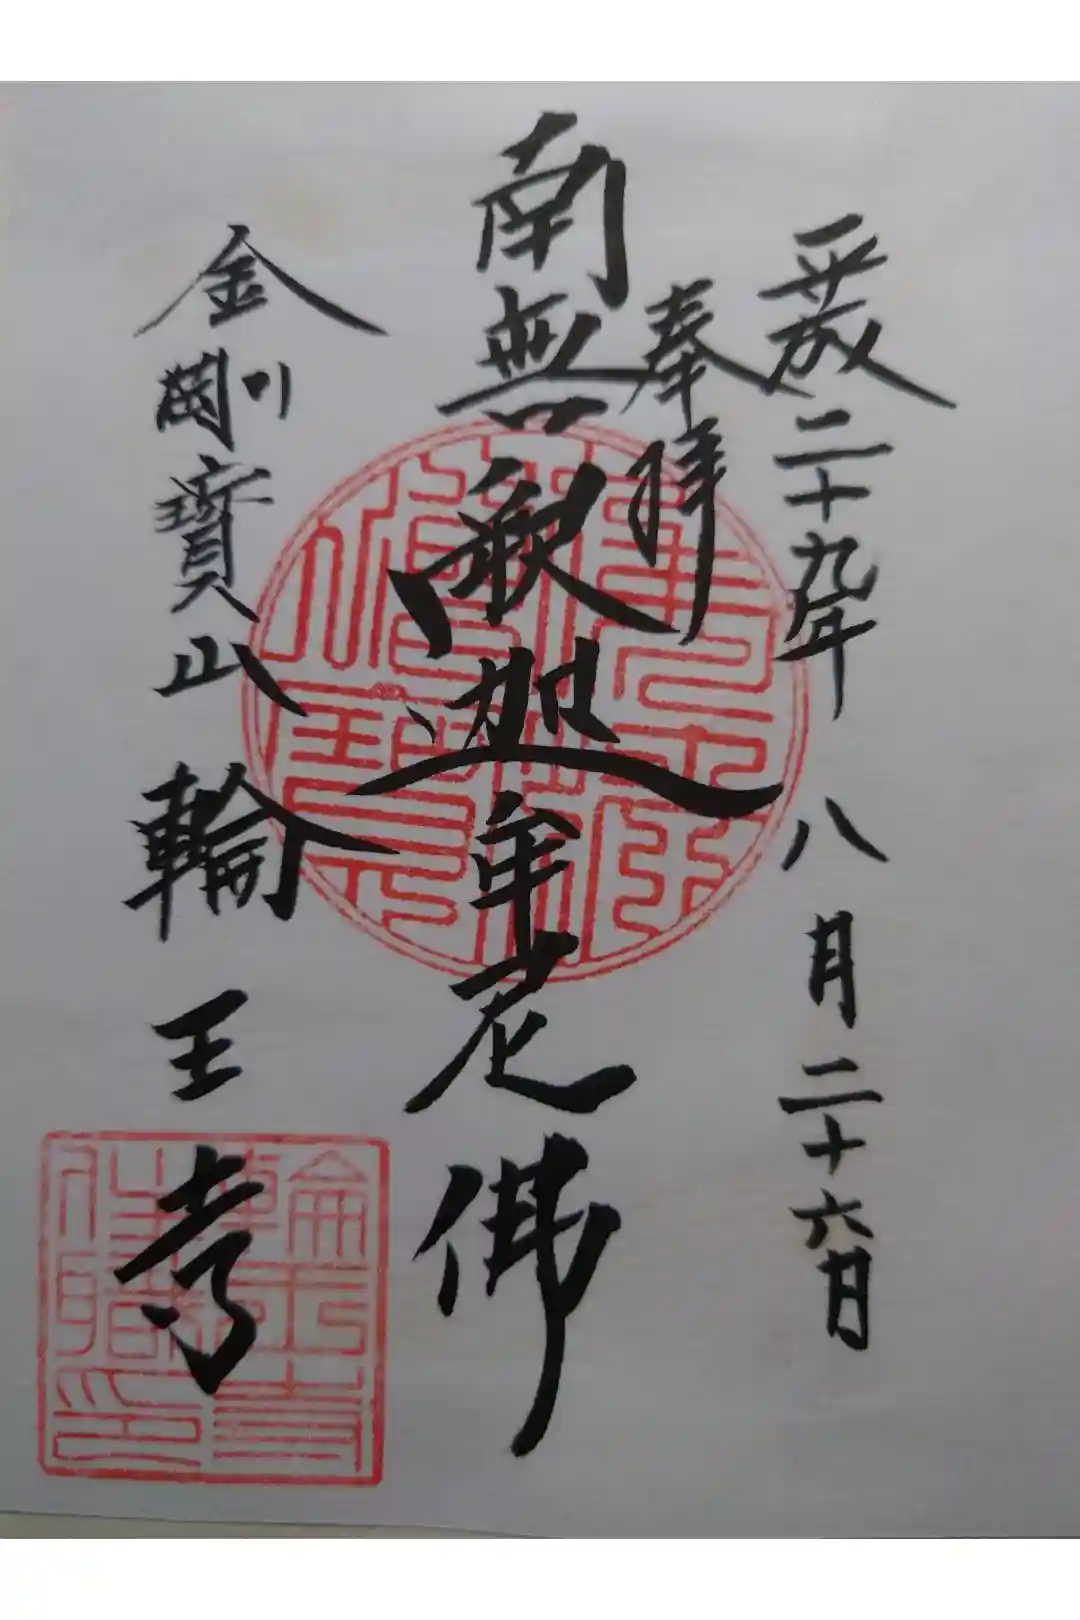 平成二十九年八月二十六日
奉拝
南無釈迦牟尼佛
金剛寳山輪王寺
輪王寺住職之印